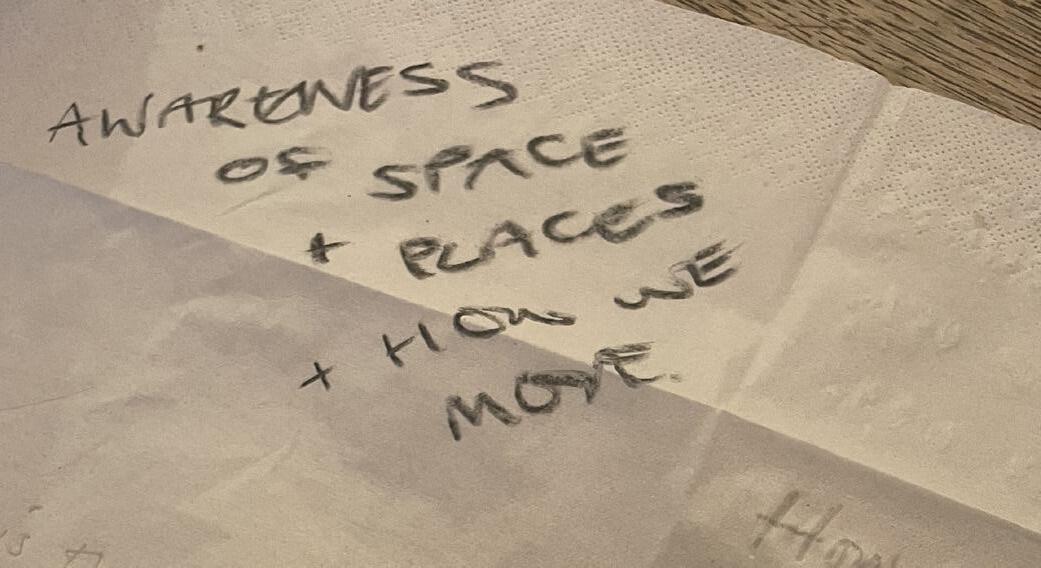 AWARENESS
OF SPACE
+ PLACES
+ HOW WE
MOVE.
is
How